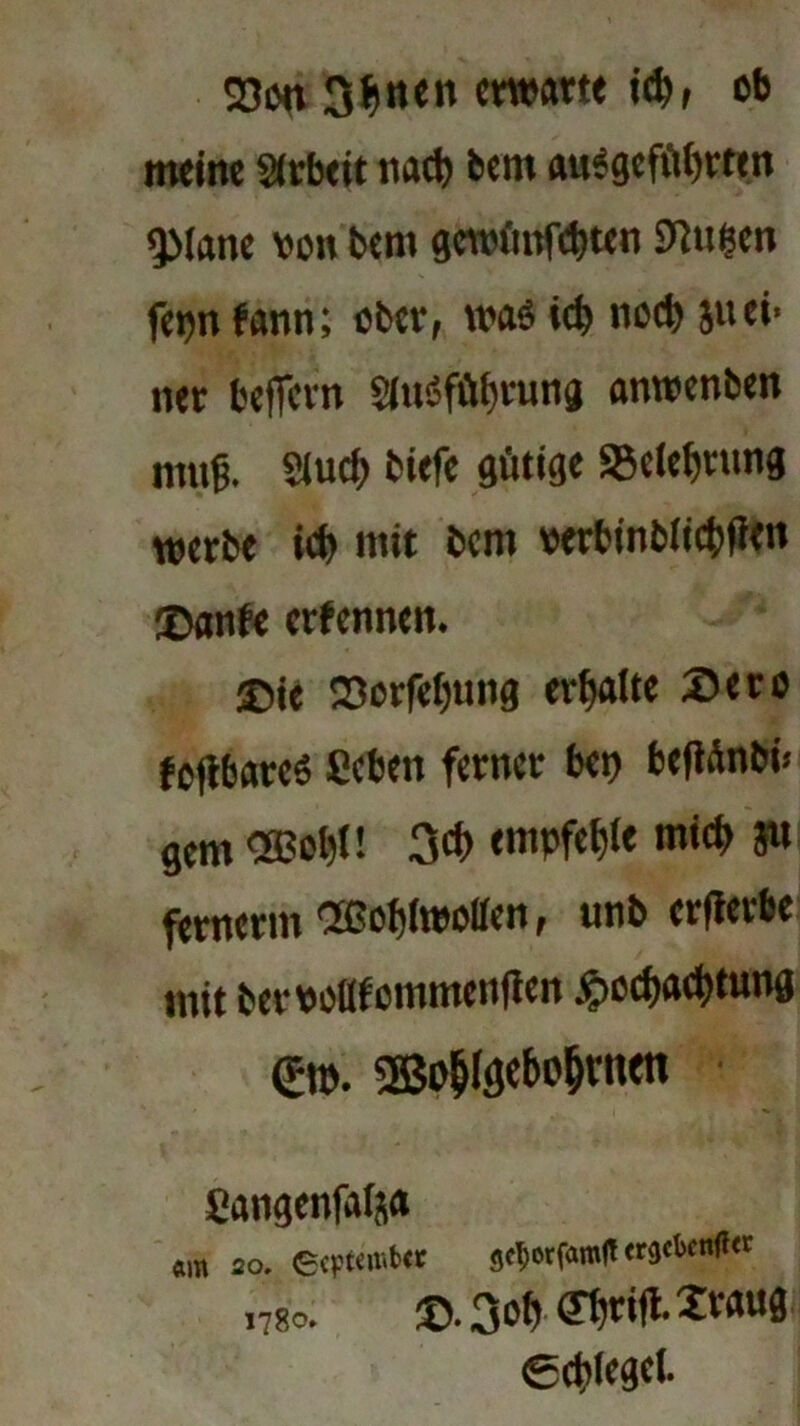 Von Ihnen erwarte ich, ob
meine Arbeit nach dem ausgeführten
Plane von dem gewünschten Nutzen
seyn kann; oder, was ich noch zu ei-
ner bessern Ausführung anwenden
muß. Auch diese gütige Belehrung
werde ich mit dem verbindlichsten
Danke erkennen.
Die Vorsehung erhalte Dero
kostbares Leben ferner bey beständi-
gem Wohl! Ich empfehle mich zu
fernerm Wohlwollen, und ersterbe
mit der vollkommensten Hochachtung
Ew. Wohlgebohrnen
Langensalza
am 20. September gehorsamst ergebenster
1780. D. Joh. Christ. Traug
Schlegel.